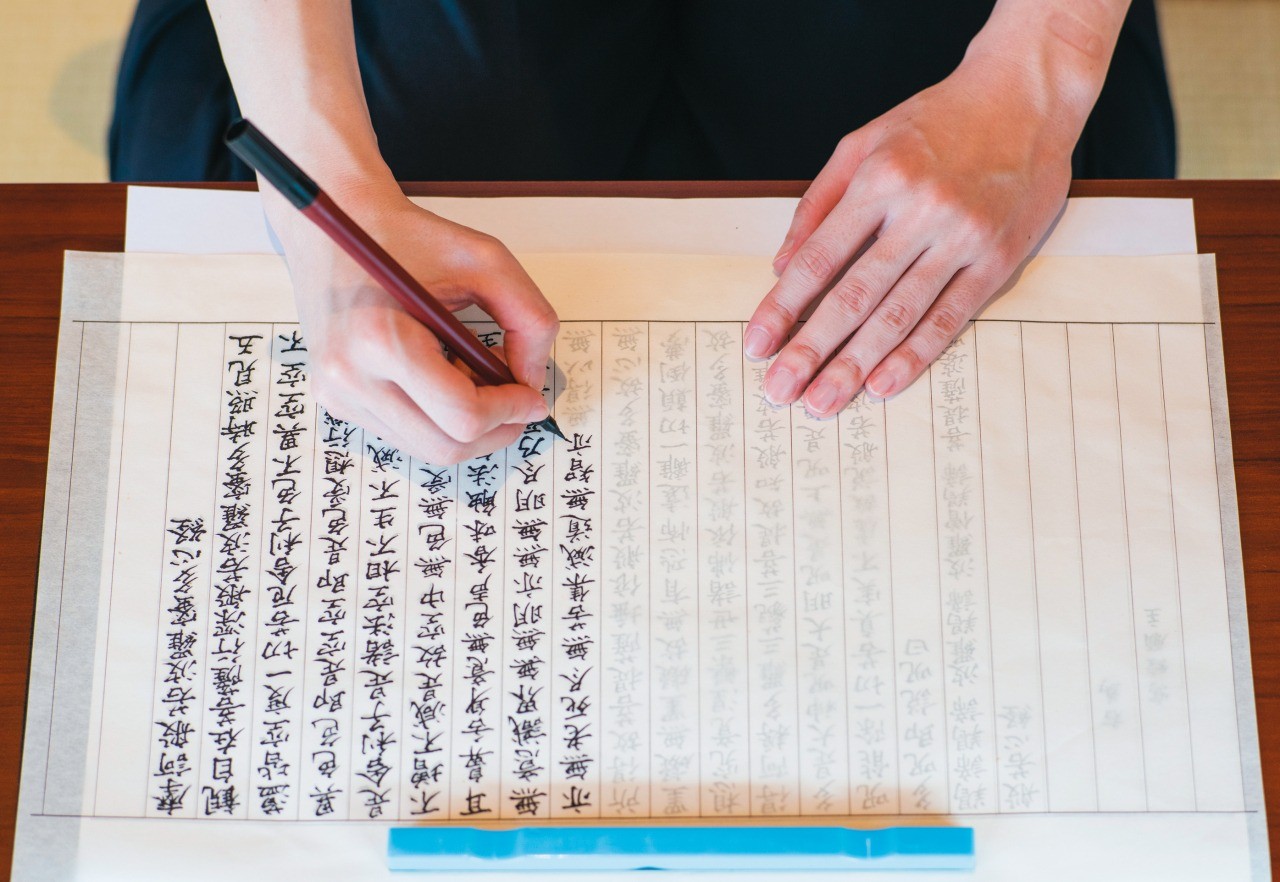 摩訶般若波羅蜜多心経
観自在菩薩行深般若波羅蜜多時照見五
蘊皆空度一切苦厄舎利子色不異空空不
異色色即是空空即是色受想行
是舎利子是諸法空相不生不滅
不増不減是故空中無色無受
耳鼻舌身意無色声香味触法
無意識界無無明亦無無明尽乃
亦無老死尽無苦集滅道無智亦無得以無
所得故菩提薩埵依般若波羅蜜多故心無
罣礙無罣礙故無有恐怖遠離一切顛倒夢
想究竟涅槃三世諸仏依般若波羅蜜多故
得阿耨多羅三藐三菩提故知般若
多是大神呪是大明呪是無上呪是
呪能除一切苦真実不虚故説般若
多呪即説呪曰
羯諦羯諦波羅羯諦波羅僧羯諦菩提薩婆
般若心経